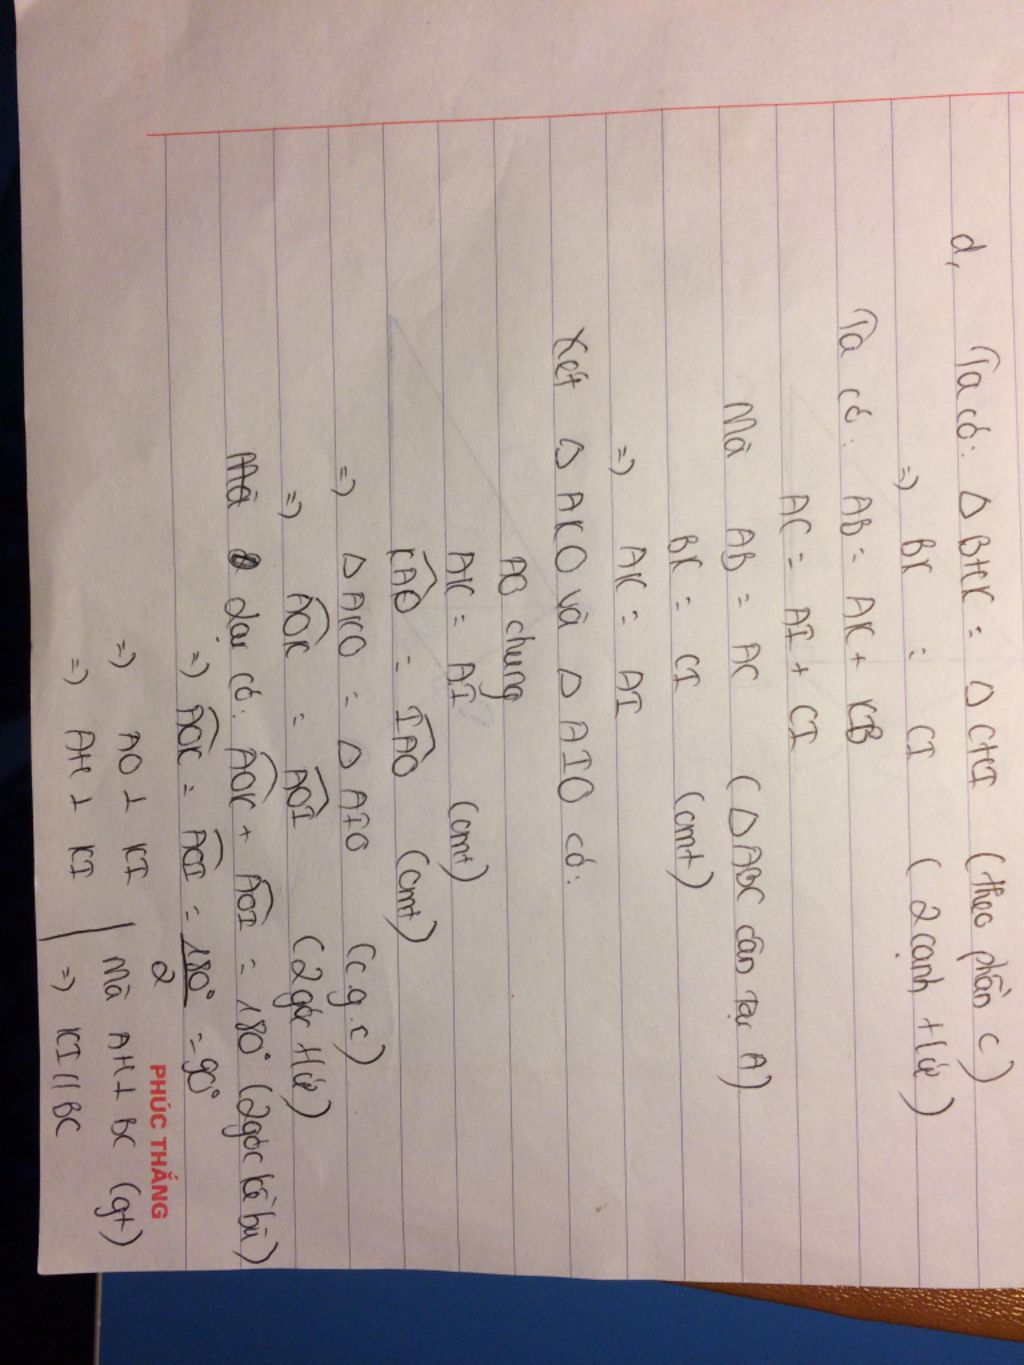 d, Ta có: Δ BHK = Δ CHI (theo phần c)
=) BK = CI (2 cạnh t/ứ)
Ta có: AB = AK + KB
AC = AI + CI
Mà AB = AC (Δ ABC cân tại A)
BK = CI (cmt)
=) AK = AI
Xét Δ AKO và Δ AIO có:
AO chung
AK = AI (cmt)
KAO = IAO (cmt)
=) Δ AKO = Δ AIO (c.g.c)
=) AOK = AOI (2 góc t/ứ)
Mà lại có: AOK + AOI = 180° (2 góc kề bù)
=) AOK = AOI = 180°/2 = 90°
PHÚC THẮNG
=) AO ⊥ KI | Mà AH ⊥ BC (gt)
=) AH ⊥ KI | =) KI // BC